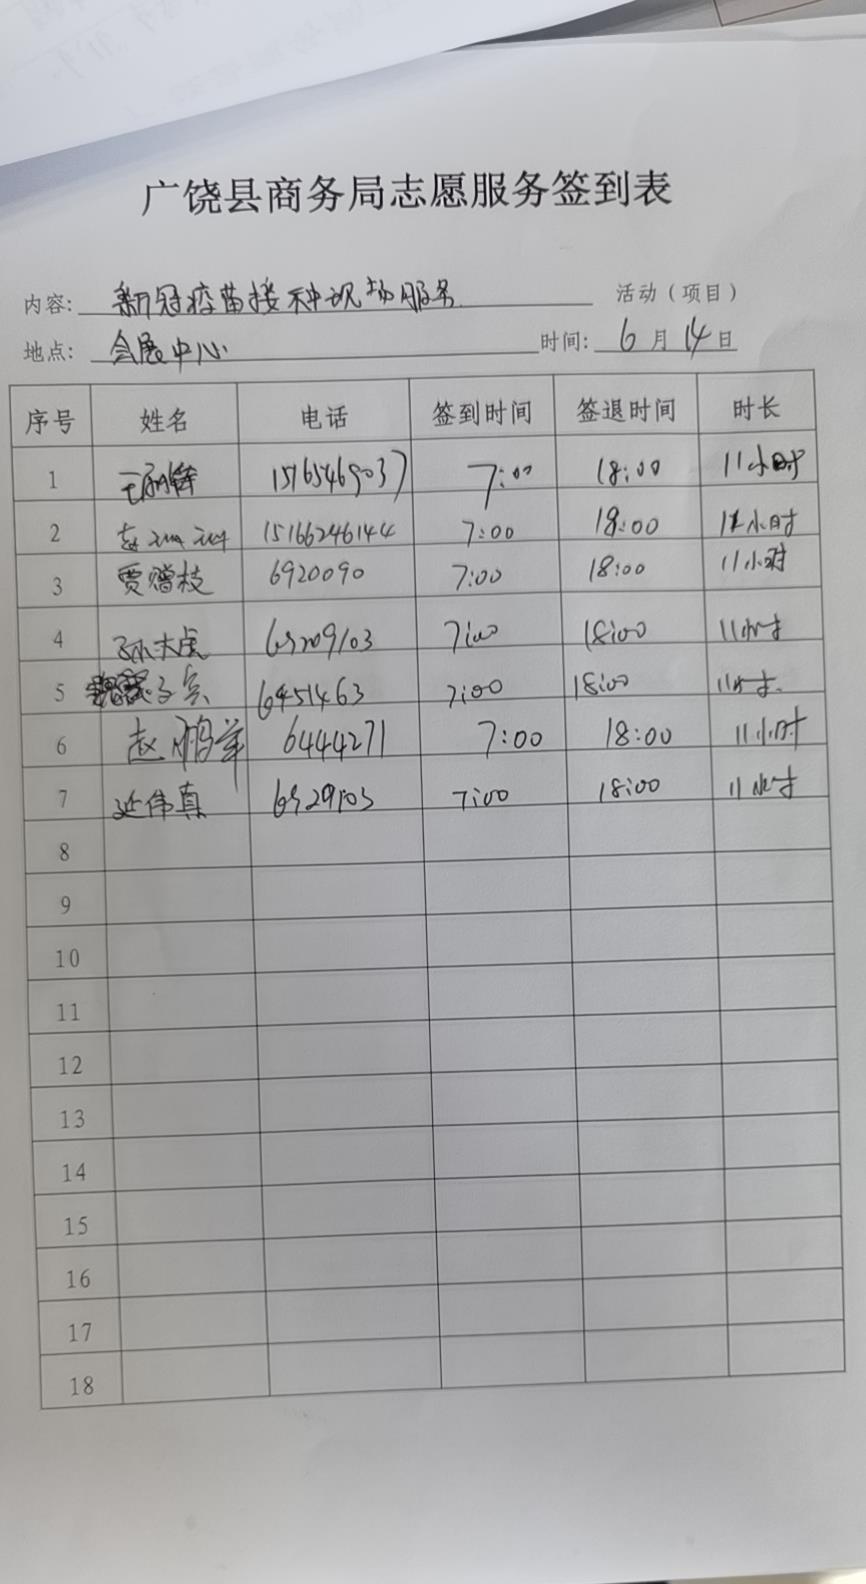 广饶县商务局志愿服务签到表
内容: 新冠疫苗接种现场服务 活动(项目)
地点: 会展中心 时间: 6月14日
序号 姓名 电话 签到时间 签退时间 时长
1 15765469037 7:00 18:00 11小时
2 15166246144 7:00 18:00 11小时
3 贾增枝 6920090 7:00 18:00 11小时
4 孙大虎 7:00 18:00 11小时
5 6451463 7:00 18:00 11小时
6 赵鹏 6444271 7:00 18:00 11小时
7 延伟真 7:00 18:00 11小时
8
9
10
11
12
13
14
15
16
17
18